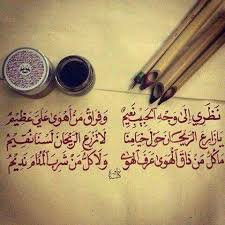 نَظَري إلى وَجْهِ الحَبيبِ نَعيمُ وَفِراقُ مَنْ أهْوى عَلَيَّ عَظيمُ
يا زارِعَ الرَّيحانِ حَوْلَ خِيامِنا لا تَزْرَعِ الرَّيحانَ لَسْنا نُقيمُ
ما كُلُّ مَنْ ذاقَ الهَوى عَرَفَ الهَوى وَلا كُلُّ مَنْ شَرِبَ المُدامَ نَديمُ